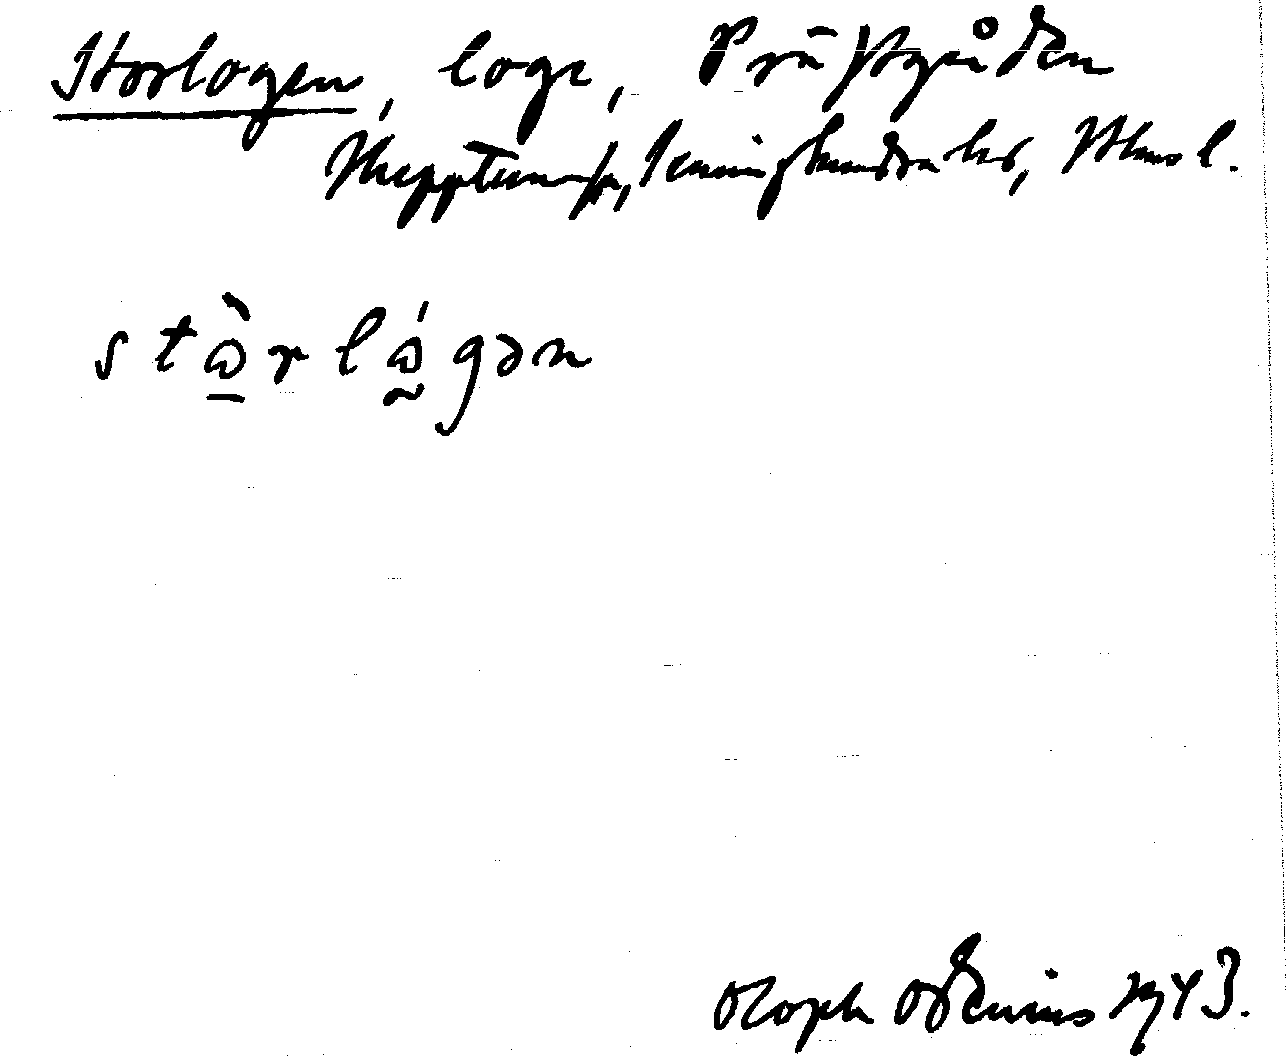 Storlogen, loge, Prästgården
Skepptuna sn, Seminghundra hd, Sthms l.
stὼ̱rlώ̰gən
Oloph Odenius 1943.